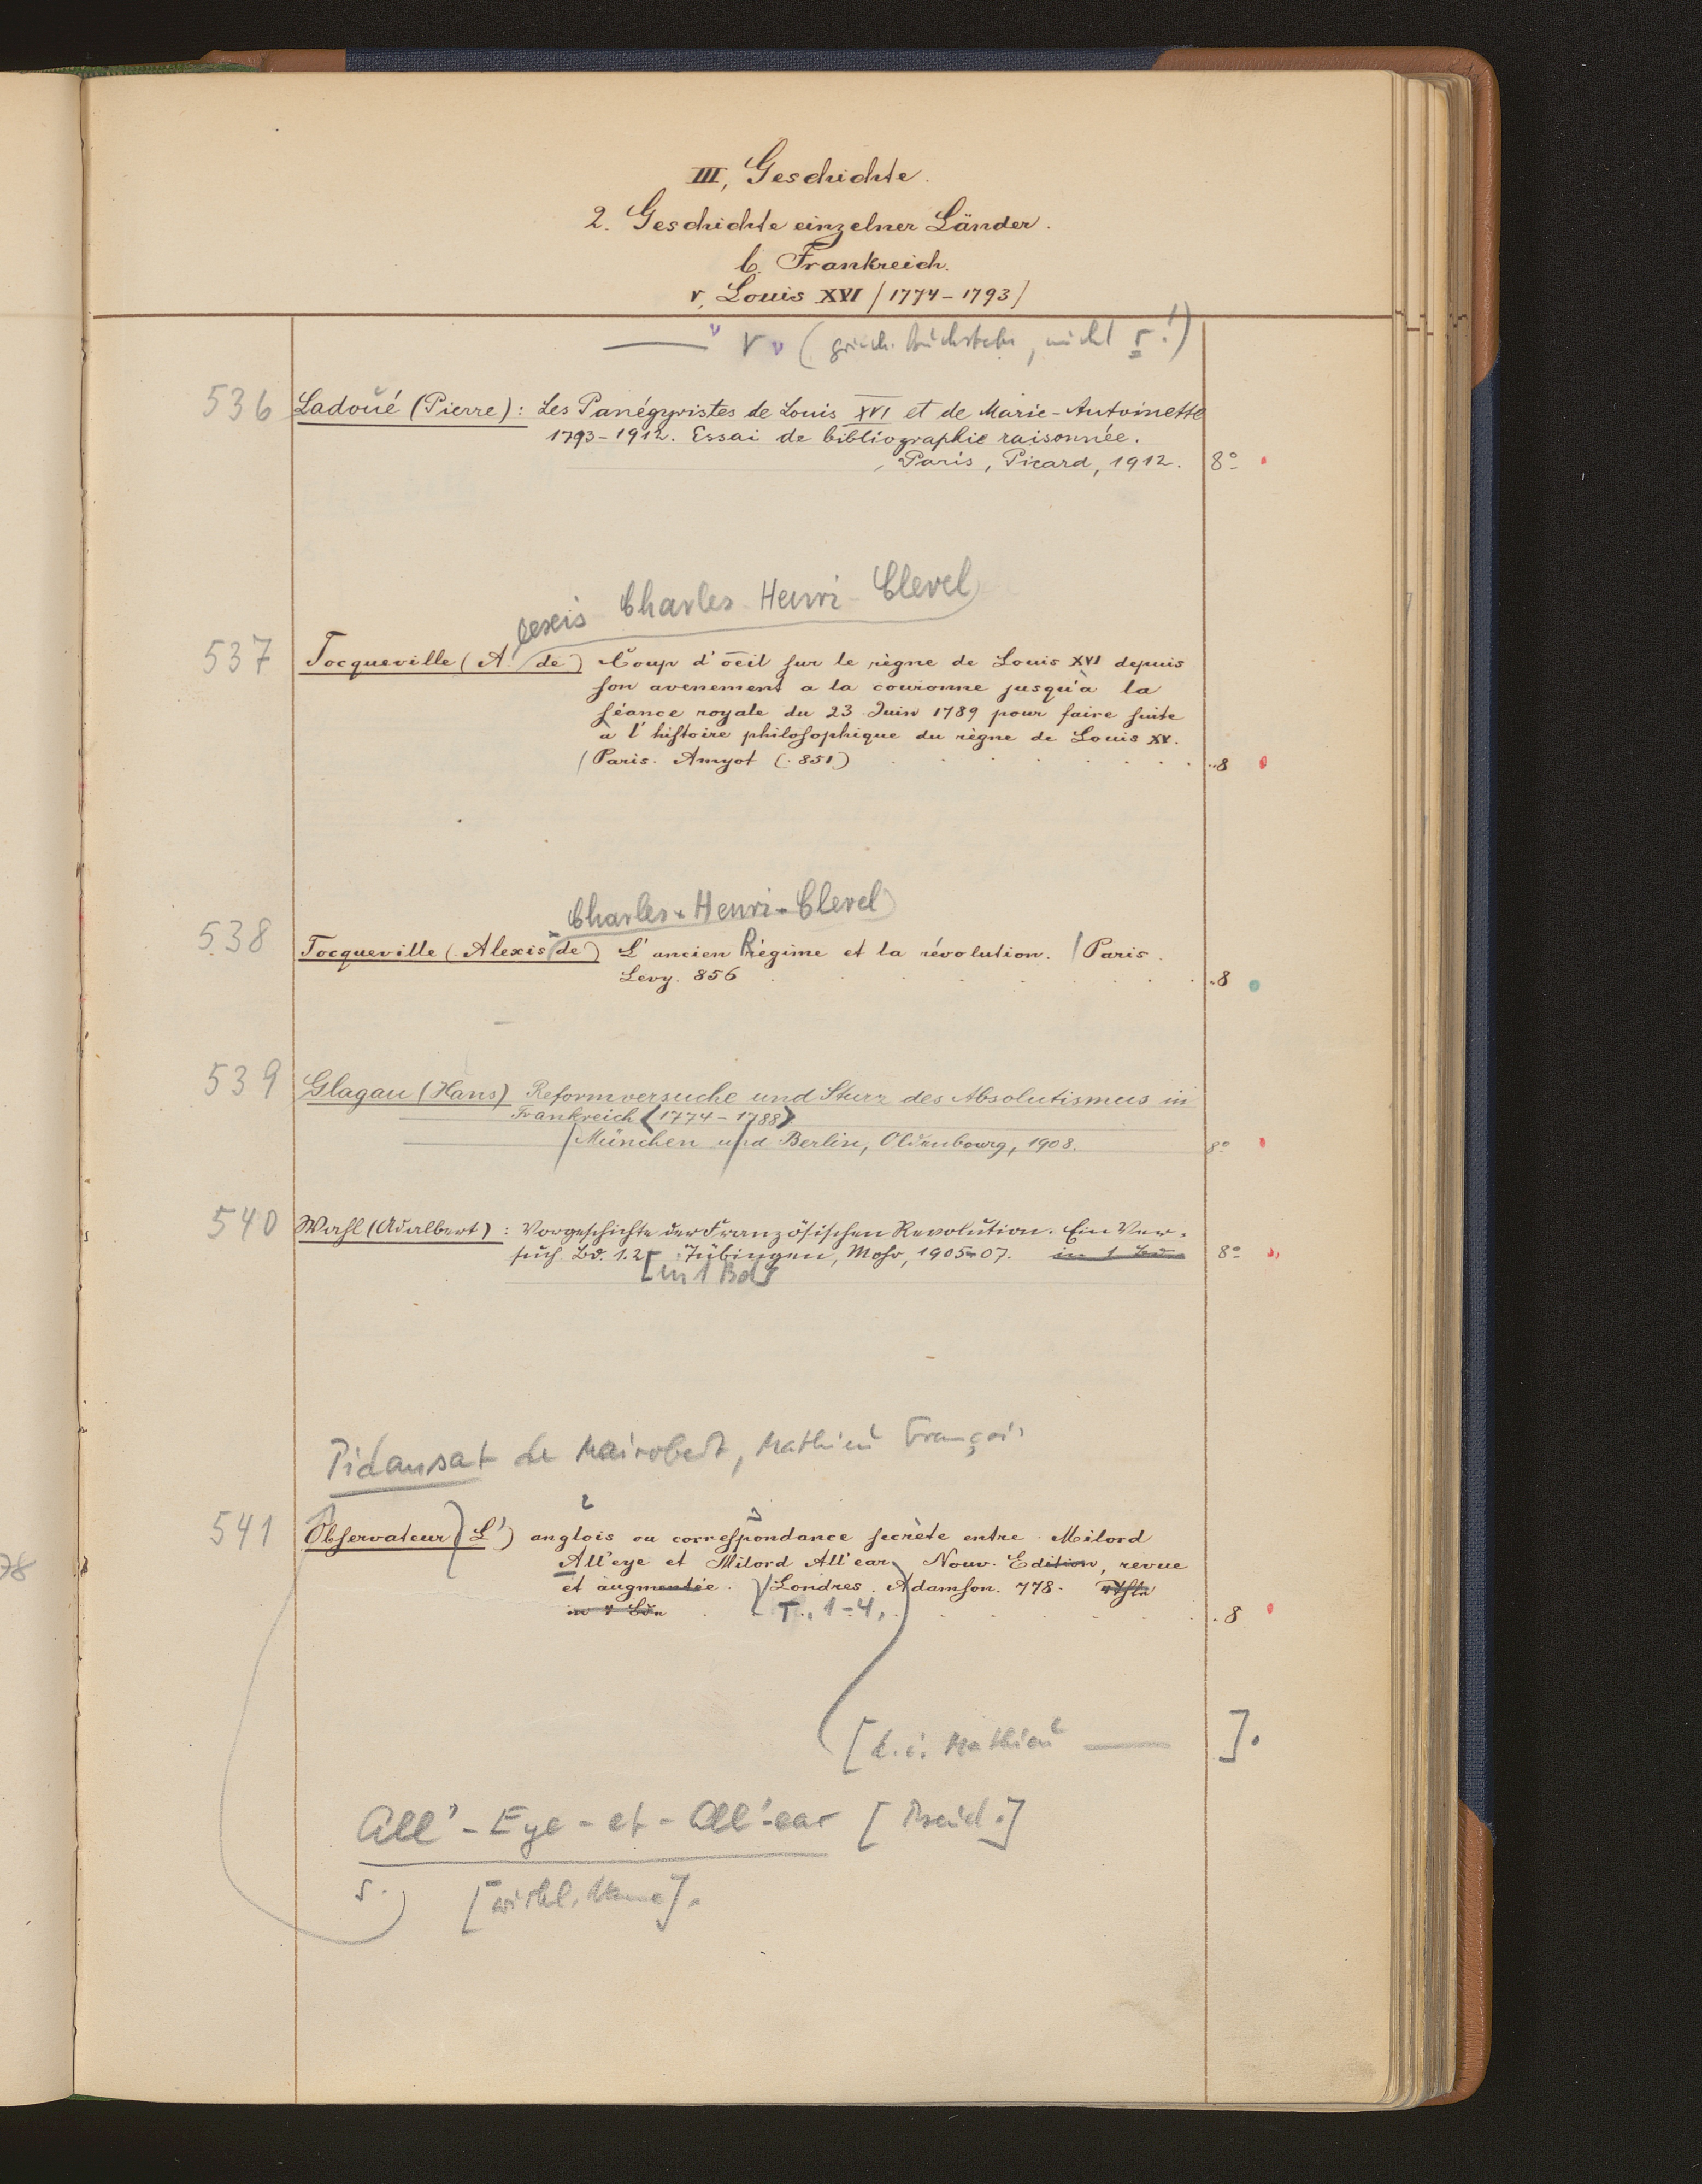 III, Geschichte.
2. Geschichte einzelner Länder.
b. Frankreich.
v, Louis XVI (1774-1793)
v (griech. Buchstabe, nicht r!)
536 Ladoué (Pierre): Les Panégyristes de Louis XVI et de Marie-Antoinette
1793-1912. Essai de bibliographie raisonnée.
Paris, Picard, 1912. 8°
lexis Charles Henri Clerel
537 Tocqueville (A. de) Coup d'oeil sur le règne de Louis XVI depuis
son avenement a la couronne jusqu'à la
séance royale du 23 Juin 1789 pour faire suite
à l'histoire philosophique du règne de Louis XV.
Paris. Amyot (.851) 8
Charles-Henri-Clerel
538 Tocqueville (Alexis de) L'ancien Régime et la révolution. Paris.
Levy. 856 8
539 Glagau (Hans) Reformversuche und Sturz des Absolutismus in
Frankreich <1774-1788>
München und Berlin, Oldenbourg, 1908. 8°
540 Wahl (Adalbert): Vorgeschichte der Französischen Revolution. Ein Ver-
such. Bd. 1.2 Tübingen, Mohr, 1905-07. in 1 Bde 8°
[in 1 Bd]
Pidansat de Mairobert, Mathieu François
541 Observateur (L') anglois ou correspondance secrète entre Milord
All'eye et Milord All'ear, Nouv. Edition, revue
et augmentée. Londres. Adamson. 778.
in 4 Bdn T. 1-4. 8
[d. i. Mathieu — ].
All'-Eye-et-All'-ear [Pseud.]
s. [wirkl. Name].
78